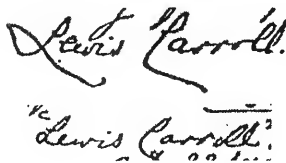 Lewis Carroll.
"Lewis Carroll".